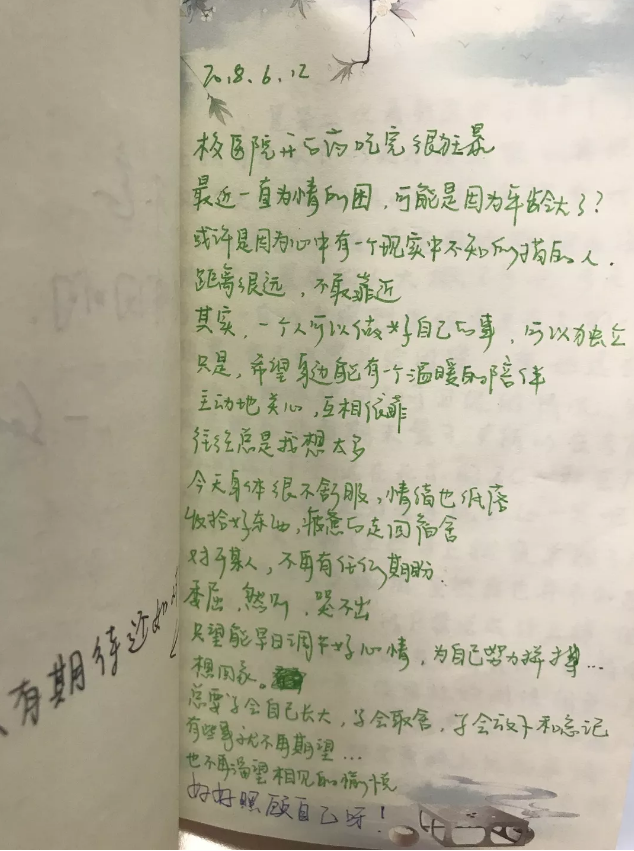 2018.6.12
校医院开的药吃完很狂暴
最近一直为情所困，可能是因为年龄大了？
或许是因为心中有一个现实中不知所措的人．
距离很远，不敢靠近
其实，一个人可以做好自己的事，可以独立
只是，希望身边能有一个温暖的陪伴
主动地关心，互相依靠
往往总是我想太多
今天身体很不舒服，情绪也低落
收拾好东西，疲惫的走回宿舍
对于某人，不再有任何期盼．
委屈，然后，哭不出
只望能早日调节好心情，为自己努力拼搏…
想回家。
总要学会自己长大，学会取舍，学会放下和忘记
有些事就不再期望…
也不再渴望相见的愉悦
好好照顾自己呀！
有期待近如